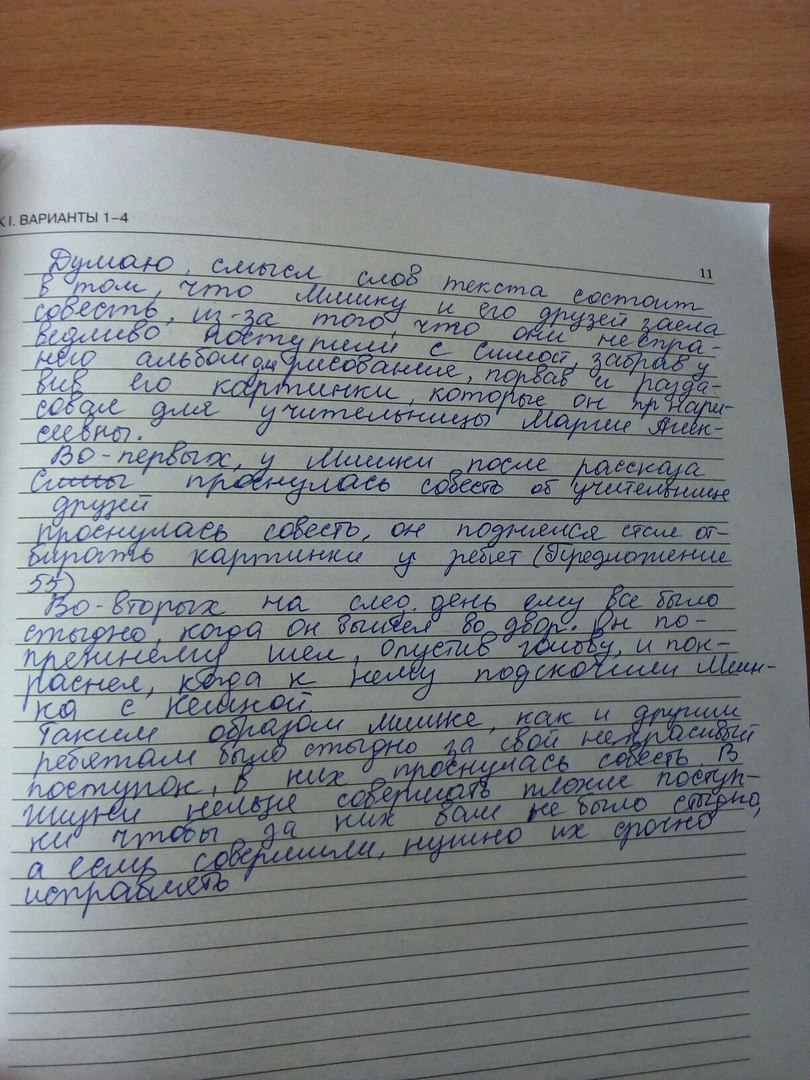 К I. ВАРИАНТЫ 1–4
11
Думаю, смысл слов текста состоит
в том, что Мишку и его друзей заела
совесть, из-за того, что они неспра-
ведливо поступили с Симой, забрав у
него альбом для рисование, порвав и разда-
вив его картинки, которые он пр нари-
совал для учительницы Марии Алек-
сеевны.
Во-первых, у Мишки после рассказа
Симы проснулась совесть об учительнице
друзей
проснулась совесть, он поднялся стал от-
бирать картинки у ребят (Предложение
55)
Во-вторых на след. день ему все было
стыдно, когда он вышел во двор. Он по-
прежнему шел, опустив голову, и пок-
раснел, когда к нему подскочили Миш-
ка с Кешкой.
Таким образом Мишке, как и другим
ребятам было стыдно за свой некрасивый
поступок, в них проснулась совесть. В
жизни нельзя совершать плохие поступ-
ки чтобы за них вам не было стыдно,
а если совершили, нужно их срочно
исправлять